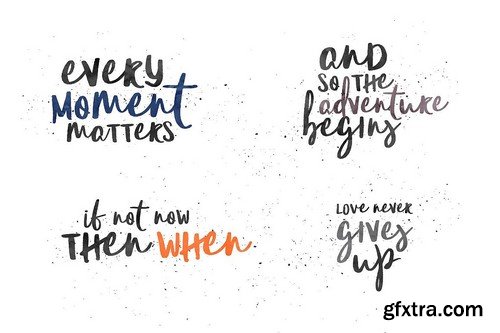 every
MOMENT
MATTERS
AND
SO THE
adventure
begins
if not now
THEN WHEN
LOVE NEVER
GIVES
UP
gfxtra.com